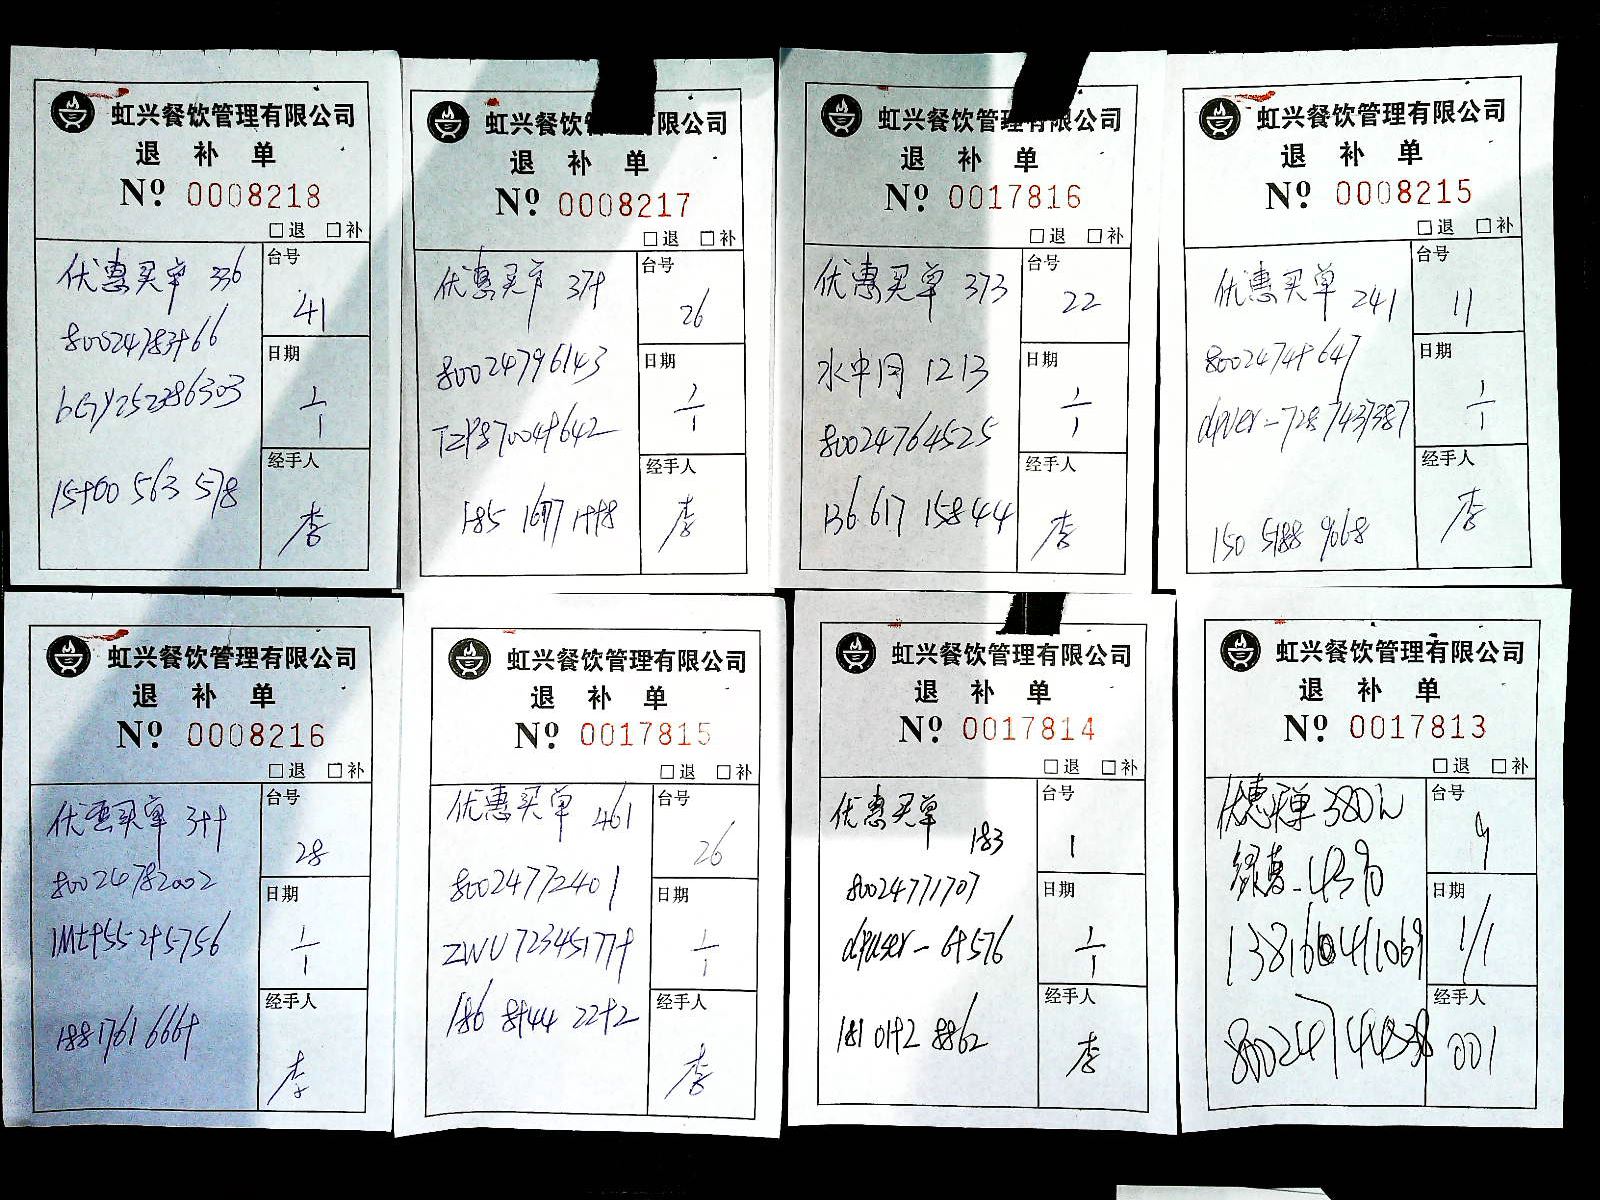 虹兴餐饮管理有限公司
退 补 单
Nº 0008218
□退 □补
优惠买单 336
台号
41
80024783966
日期
1/1
bGY252286303
经手人
李
15900 563 578
虹兴餐饮管 有限公司
退 补 单
Nº 0008217
□退 □补
优惠买单 379
台号
26
80024796143
日期
1/1
TZP870049642
经手人
李
185 1677 1998
虹兴餐饮管理有限公司
退 补 单
Nº 0017816
□退 □补
优惠买单 373
台号
22
水中月 1213
日期
1/1
80024764525
经手人
李
136 617 15844
虹兴餐饮管理有限公司
退 补 单
Nº 0008215
□退 □补
优惠买单 241
台号
11
80024749647
日期
1/1
经手人
李
150 5188 9068
虹兴餐饮管理有限公司
退 补 单
Nº 0008216
□退 □补
优惠买单 399
台号
28
80024782002
日期
1/1
经手人
李
188 1761 6669
虹兴餐饮管理有限公司
退 补 单
Nº 0017815
□退 □补
优惠买单 461
台号
26
80024772401
日期
1/1
ZWU723451779
经手人
李
186 8944 2292
虹兴餐饮管理有限公司
退 补 单
Nº 0017814
□退 □补
优惠买单 183
台号
1
80024771707
日期
1/1
dpuser-69576
经手人
李
181 0192 8862
虹兴餐饮管理有限公司
退 补 单
Nº 0017813
□退 □补
优惠买单 380
台号
9
日期
1/1
13816041069
经手人
001